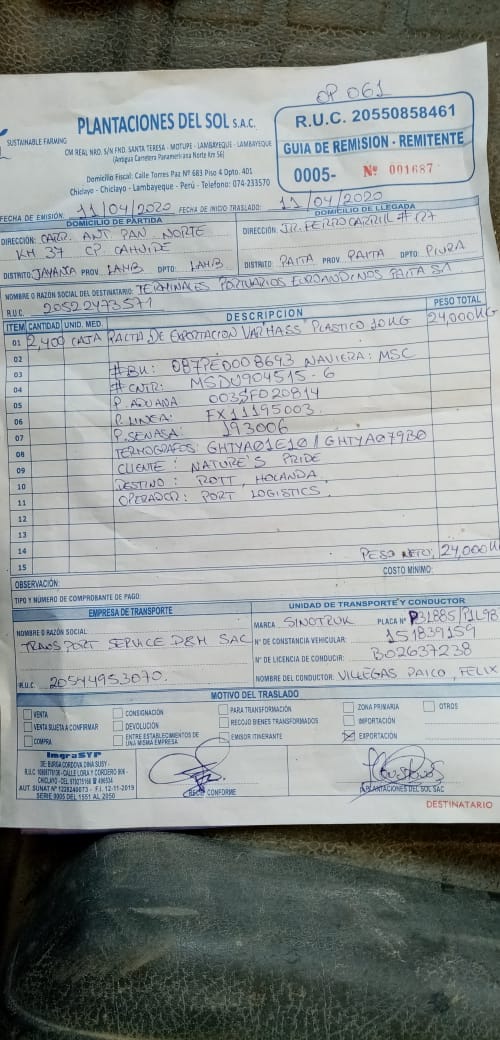 OP 061
SUSTAINABLE FARMING
PLANTACIONES DEL SOL S.A.C.
OM REAL NRO. S/N FND. SANTA TERESA - MOTUPE - LAMBAYEQUE - LAMBAYEQUE
(Antigua Carretera Panamericana Norte Km 56)
Domicilio Fiscal: Calle Torres Paz Nº 683 Piso 4 Dpto. 401
Chiclayo - Chiclayo - Lambayeque - Perú - Telefono: 074-233570
R.U.C. 20550858461
GUIA DE REMISION - REMITENTE
0005- Nº 001687
FECHA DE EMISIÓN: 11/04/2020 FECHA DE INICIO TRASLADO: 11/04/2020
DOMICILIO DE PARTIDA
DIRECCIÓN: CARR. ANT PAN. NORTE
KM 37 CP CAHUIDE
DISTRITO: JAYANCA PROV. LAMB DPTO: LAMB.
DOMICILIO DE LLEGADA
DIRECCIÓN: JR. FERROCARRIL # 127
DISTRITO PAITA PROV. PAITA DPTO: PIURA
NOMBRE O RAZÓN SOCIAL DEL DESTINATARIO: TERMINALES PORTUARIOS EUROANDINOS PAITA SA
R.U.C. 20522473571
ITEM CANTIDAD UNID. MED. DESCRIPCION PESO TOTAL
01 2,400 CAJA PALTA DE EXPORTACION VAR HASS PLASTICO 10KG 24,000KG
02
03 # BK: 087PE0008693 NAVIERA: MSC
04 # CNTR: MSDU904515-6
05 P. ADUANA 0035F020814
06 P. LINEA: FX11195003
07 P. SENASA: J93006
08 TERMOGRAFOS: GHTYA01E10 / GHTYA079B0
09 CLIENTE: NATURE'S PRIDE
10 DESTINO: ROTT, HOLANDA
11 OPERADOR: PORT LOGISTICS
12
13
14 PESO NETO, 24,000K
15 COSTO MINIMO:
OBSERVACIÓN:
TIPO Y NÚMERO DE COMPROBANTE DE PAGO:
EMPRESA DE TRANSPORTE
NOMBRE O RAZÓN SOCIAL:
TRANSPORT SERVICE D&M SAC
R.U.C. 20544953070.
UNIDAD DE TRANSPORTE Y CONDUCTOR
MARCA SINOTRUK PLACA Nº P31885/
Nº DE CONSTANCIA VEHICULAR: 151839159
Nº DE LICENCIA DE CONDUCIR: B02637238
NOMBRE DEL CONDUCTOR: VILLEGAS PAICO, FELIX
MOTIVO DEL TRASLADO
VENTA CONSIGNACIÓN PARA TRANSFORMACIÓN ZONA PRIMARIA OTROS
VENTA SUJETA A CONFIRMAR DEVOLUCIÓN RECOJO BIENES TRANSFORMADOS IMPORTACIÓN
COMPRA ENTRE ESTABLECIMIENTOS DE UNA MISMA EMPRESA EMISOR ITINERANTE EXPORTACIÓN
ImgraSYP
DE: BURGA CORDOVA DINA SUSY
CALLE LORA Y CORDERO
CHICLAYO - CEL.
AUT. SUNAT Nº F.I. 12-11-2019
SERIE 0005 DEL 1551 AL 2050
RECIBI CONFORME
P. PLANTACIONES DEL SOL SAC
DESTINATARIO